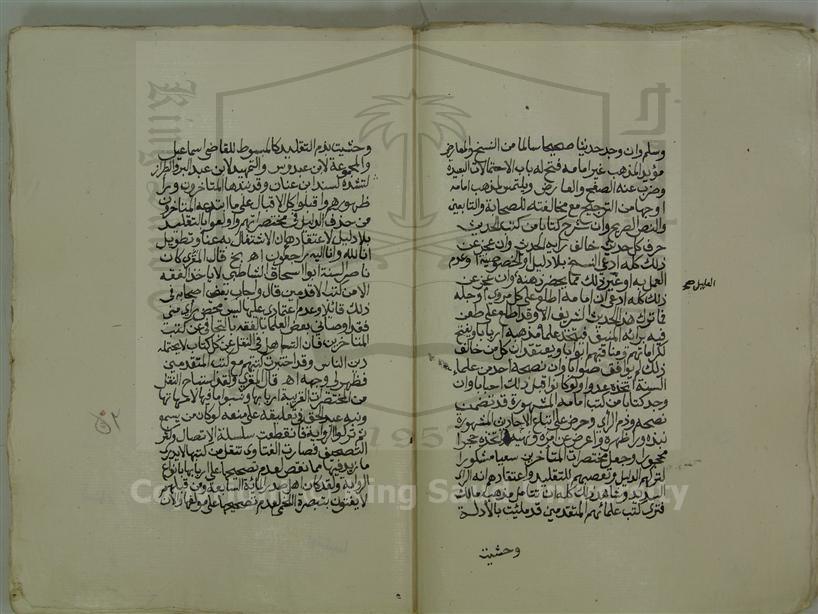 وسلم وان وجد حديثا صحيحا سالما من النسخ والمعارض
مؤيد المذهب غير امامه فتح له باب الاحتمالات البعيدة
وضرب عنه الصفح والعارض ويلتمس لمذهب امامه
اوجها من الترجيح مع مخالفته للصحابة والتابعين
والنص الصريح وان شرح كتابا من كتب الحديث
حرف كل حديث خالف رايه الحديث وان عجز عن
ذلك كله ادعى النسخ بلا دليل او الخصوصية او عدم
العمل به او غير ذلك مما يحضر ذهنه وان عجز عن
ذلك كله ادعى ان امامه اطلع على كل مروي او جله
فما ترك هذا الحديث الشريف الا وقد اطلع على طعن
فيه برايه المنيف فيتخذ علماء مذهبه اربابا ويفتح
لمناقبهم وكراماتهم ابوابا ويعتقد ان كل من خالف
ذلك لم يوافق صوابا وان نصحه احد من علماء
السنة اتخذه عدوا ولو كانوا قبل ذلك احبابا وان
وجد كتابا من كتب امامه المشهورة قد تضمن
نصحه وذم الراي وحرض على اتباع الاحاديث المشهورة
نبذه وراء ظهره واعرض عن امره ونهيه واتخذه حجرا
محجورا وجعل مختصرات المتاخرين سعيا مشكورا
لتركهم الدليل وتعصبهم للتقليد واعتقاده انه الراي
السديد وشاهد ذلك كله ان تتامل مذهب مالك
فترى كتب علمائهم المتقدمين قد ملئت بالادلة
وحشيت
الدليل صح
وحشيت بذم التقليد كالمبسوط للقاضي اسماعيل
والمجموعة لابن عبدوس والتمهيد لابن عبد البر والطراز
لتلميذه لسند ابن عنان وقد نبذها المتاخرون وراء
ظهورهم واقبلوا كل الاقبال على ما ابتدعه المتاخرون
من حذف الدليل في مختصراتهم واولعوا بالتقليد
بلا دليل لاعتقادهم ان الاشتغال به عناء وتطويل
انا لله وانا اليه راجعون اهـ بخ قال المقري كان
ناصر السنة ابو اسحاق الشاطبي لا ياخذ الفقه
الا من كتب الاقدمين قال واجاب بعض اصحابه في
ذلك قائلا وعدم اعتمادي عليها ليس محض راي مني
فقد اوصاني بعض العلماء بالفقه بالتحاشي عن كتب
المتاخرين قال التساهل في النقل عن كل كتاب لا يحتمله
دين الناس وقد اختبرت كتبهم مع كتب المتقدمين
فظهر لي وجهه اهـ قال المقري ولقد استباح النقل
من المختصرات الغريبة اربابها ونسبوا ما فيها لامهاتها
ونبه عبد الحق في تعليقه على منعه لو كان من يسمع
ثم تركوا الرواية فانقطعت سلسلة الاتصال وكثر
التصحيف فصارت الفتاوى تنقل من كتب لا يدرى
ما زيد فيها مما نقص لعدم تصحيحها على اربابها بانواع
الرواية ولقد كان اهل المائة السابعة ومن قبلهم
لا يفتون بتبصرة اللخمي لعدم تصحيحها على مؤلفها والان